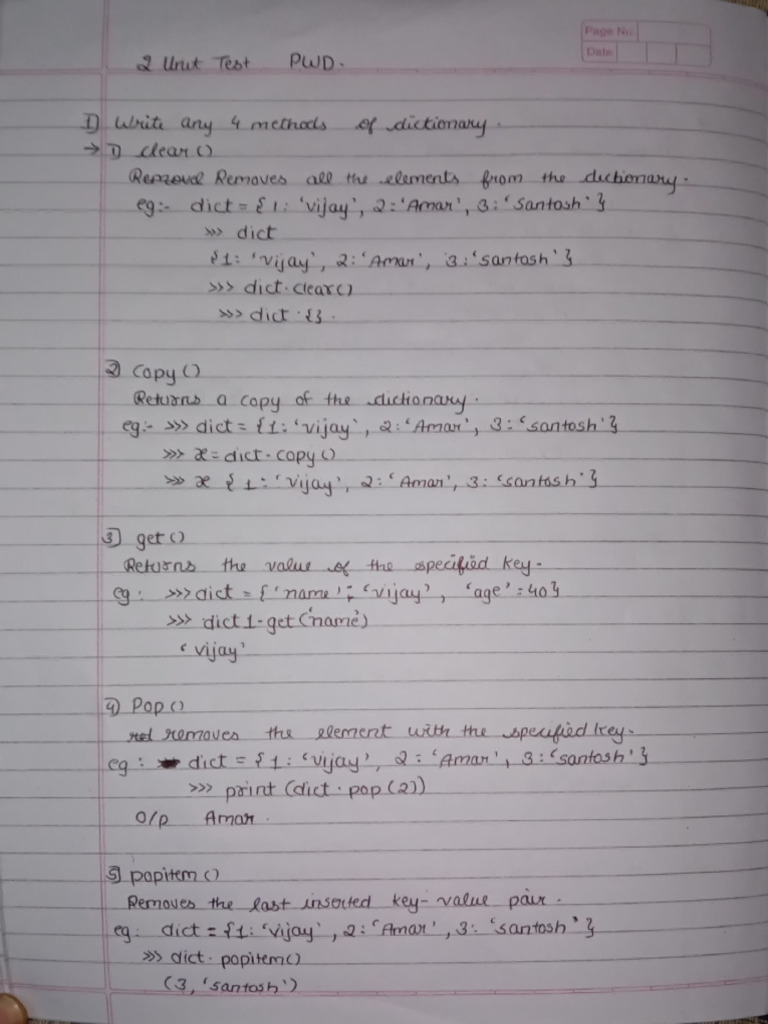 Page No:
Date:
2 Unit Test PWD.
1) Write any 4 methods of dictionary.
→ 1) clear()
Removes all the elements from the dictionary.
eg:- dict = {1: 'vijay', 2: 'Amar', 3: 'Santosh'}
>>> dict
{1: 'vijay', 2: 'Amar', 3: 'santosh'}
>>> dict.clear()
>>> dict.{}.
2) Copy()
Returns a copy of the dictionary.
eg:- >>> dict = {1: 'vijay', 2: 'Amar', 3: 'santosh'}
>>> x = dict.copy()
>>> x {1: 'vijay', 2: 'Amar', 3: 'santosh'}
3) get()
Returns the value of the specified key.
eg: >>> dict = {'name': 'vijay', 'age': 40}
>>> dict1-get('name')
'vijay'
4) Pop()
removes the element with the specified key.
eg: dict = {1: 'vijay', 2: 'Amar', 3: 'santosh'}
>>> print (dict.pop(2))
O/p Amar.
5) popitem()
Removes the last inserted key-value pair.
eg: dict = {1: 'vijay', 2: 'Amar', 3: 'santosh'}
>>> dict.popitem()
(3, 'santosh')